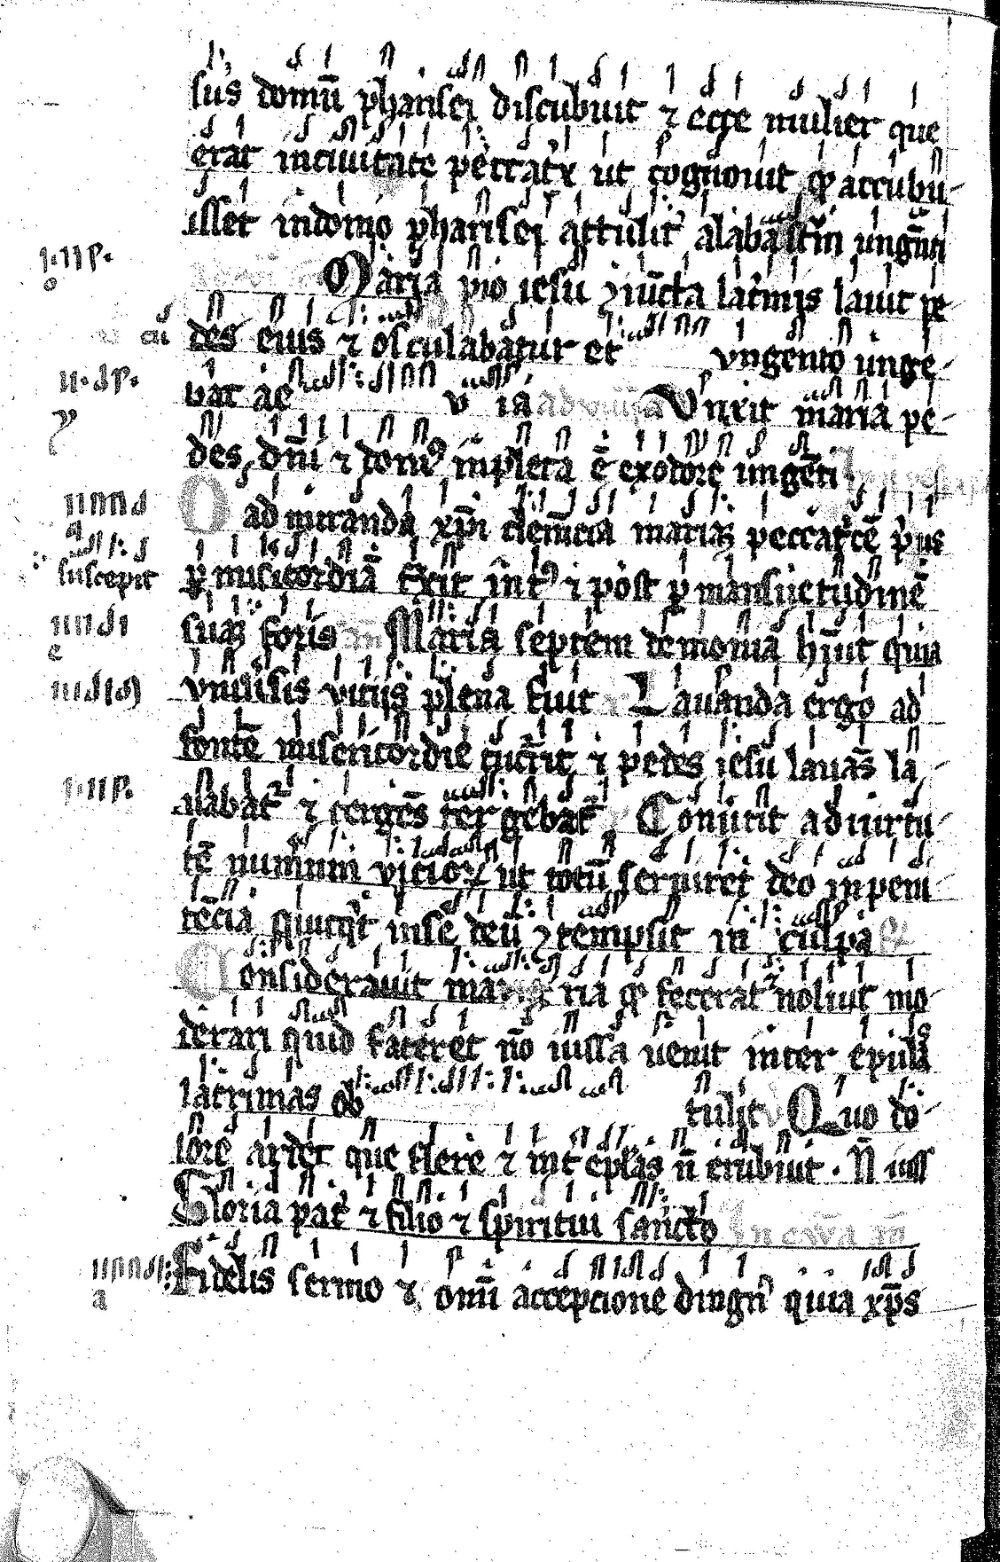 sus domū pharisei discubuit ⁊ ecce mulier que
erat inciuitate peccatrx ut cognouit ꝙ accubu-
isset indomo pharisei attulit alabastrm ungūti
Maria pio iesu iūcta lacrimis lauit pe-
cū des eius ⁊ osculabatur et vngento unge-
bat ae v ia Vnxit maria pe-
des dn̄i ⁊ domꝰ inpleta ē exodore ungēti
O ad miranda xp̄i clemēcia mariā peccat'cē p'us
suscepit ꝑ misicordiā traxit int'ꝰ ⁊ post ꝑ mansuetudinē
suā foris Maria septem demonia quia
vniuersis vitijs plena fuit Lauanda ergo ad
fontē misericordie cucurit ⁊ pedes iesu lauās la-
uabat' ⁊ tergēs tergebat' Conuertit ad uirtu-
tē numerum vicioꝝ ut totū seruiret deo in peni-
tēcia quicq't inse deū ꝯtempsit in culpa
Considerauit maria ꝙ fecerat noluit mo-
derari quid faceret nō iussa uenit inter epulas
lacrimas ob tulit Quo do-
lore ardet que flere ⁊ int' epl'as n̄ erubuit · N̄ iuss
Gloria pat' ⁊ filio ⁊ spiritui sancto In ewā an̄
Fidelis sermo ⁊ omī accepcione dingn' quia xp̄s